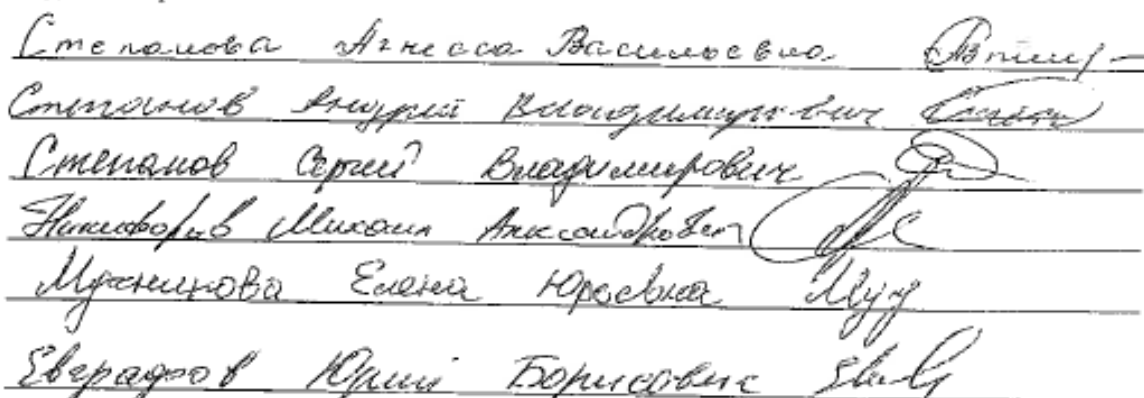 Степанова Агнесса Васильевна
Степанов Андрей Владимирович
Степанов Сергей Владимирович
Никифоров Михаил Александрович
Елена Юрьевна
Евграфов Юрий Борисович